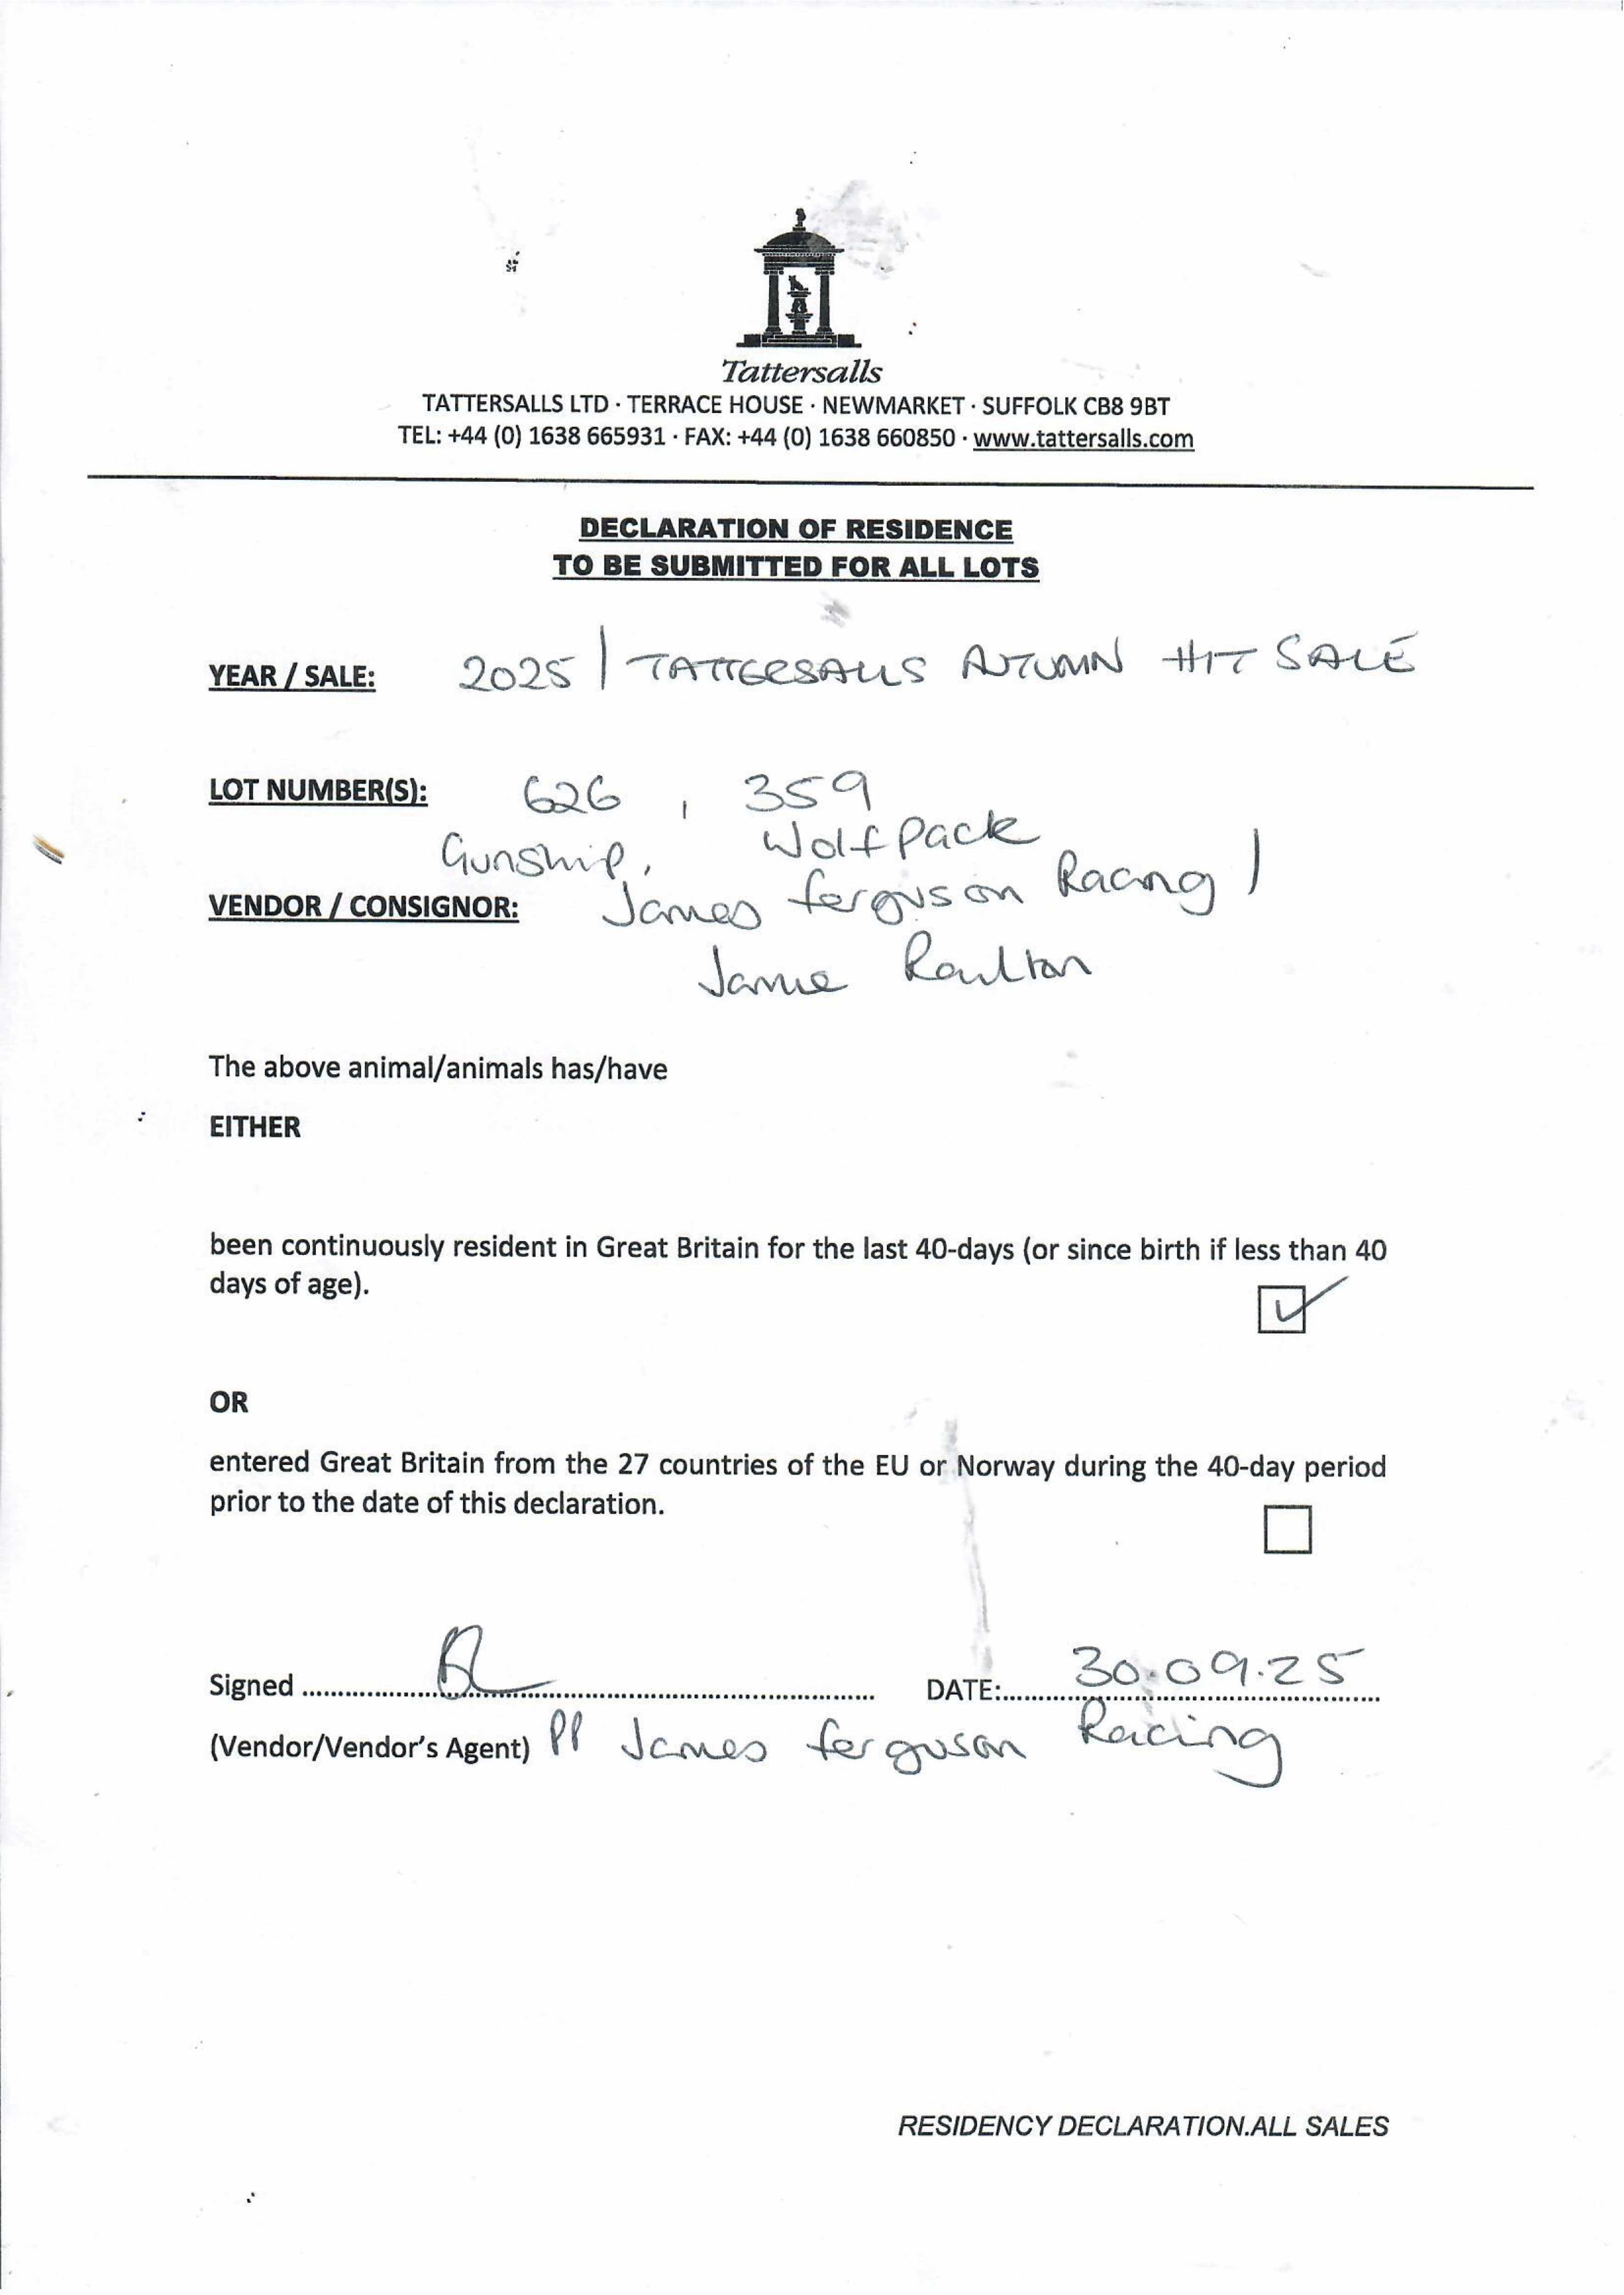 Tattersalls
TATTERSALLS LTD · TERRACE HOUSE · NEWMARKET · SUFFOLK CB8 9BT
TEL: +44 (0) 1638 665931 · FAX: +44 (0) 1638 660850 · www.tattersalls.com
DECLARATION OF RESIDENCE
TO BE SUBMITTED FOR ALL LOTS
YEAR / SALE: 2025 / TATTERSALLS AUTUMN HIT SALE
LOT NUMBER(S): 626 , 359
Gunship, Wolfpack
VENDOR / CONSIGNOR: James ferguson Racing /
Jamie
The above animal/animals has/have
EITHER
been continuously resident in Great Britain for the last 40-days (or since birth if less than 40
days of age).
OR
entered Great Britain from the 27 countries of the EU or Norway during the 40-day period
prior to the date of this declaration.
Signed DATE: 30.09.25
(Vendor/Vendor's Agent) PP James ferguson Racing
RESIDENCY DECLARATION.ALL SALES